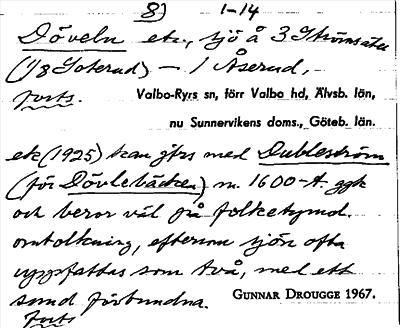 8) 1-14
Döveln etc, sjö å 3 Strömsäter
(1/8 Goterud) – 1 Åserud,
forts.
Valbo-Ryrs sn, förr Valbo hd, Älvsb. län,
nu Sunnervikens doms., Göteb. län.
ek (1925) kan jfrs med Dubleström
(för Dövlebäcken) m. 1600-t. ggk
och beror väl på folketymol.
omtolkning, eftersom sjön ofta
uppfattas som två, med ett
sund förbundna. GUNNAR DROUGGE 1967.
forts